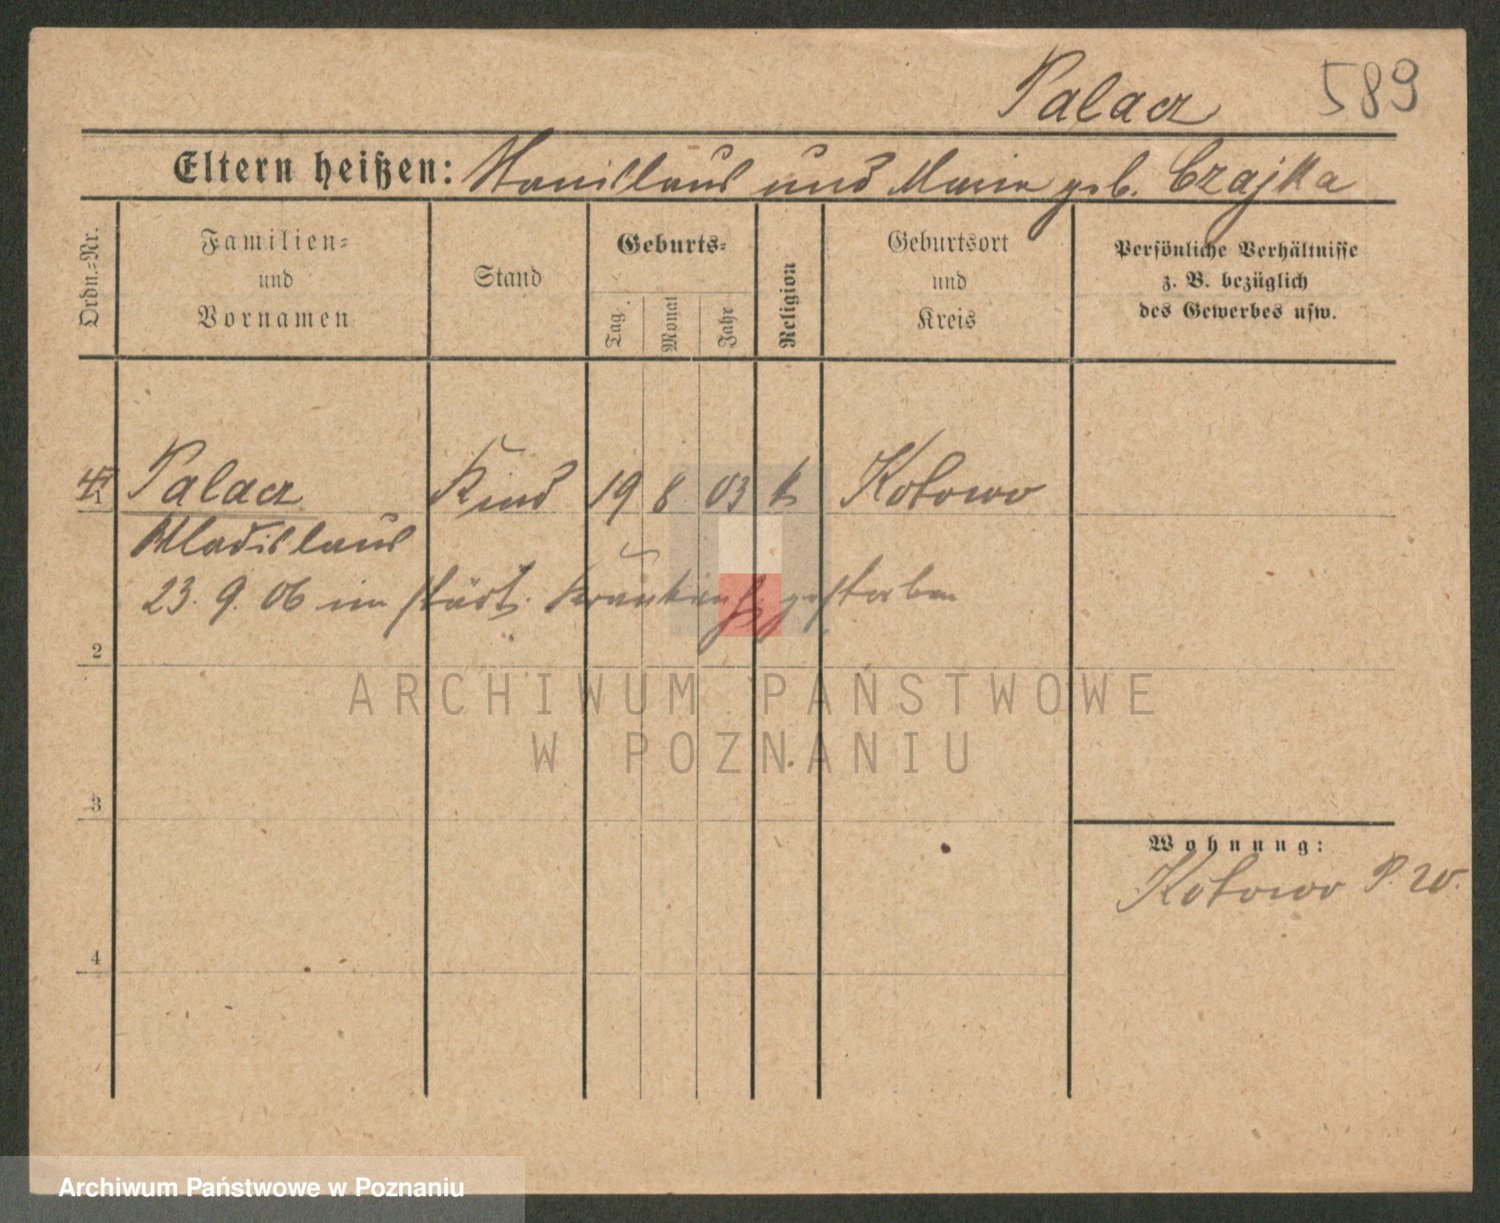 Palacz 589
Eltern heißen: Stanislaus und Maria geb. Czajka
Ordn.=Nr.
Familien=
und
Vornamen
Stand
Geburts=
Tag.
Monat
Jahr
Religion
Geburtsort
und
Kreis
Persönliche Verhältnisse
z. B. bezüglich
des Gewerbes usw.
1 Palacz Kind 19 8 03 k Kotowo
Wladislaus
23. 9. 06 im städt. Krankenh. gestorben
2
ARCHIWUM PAŃSTWOWE
W POZNANIU
3
Wohnung:
Kotowo P. W.
4
Archiwum Państwowe w Poznaniu